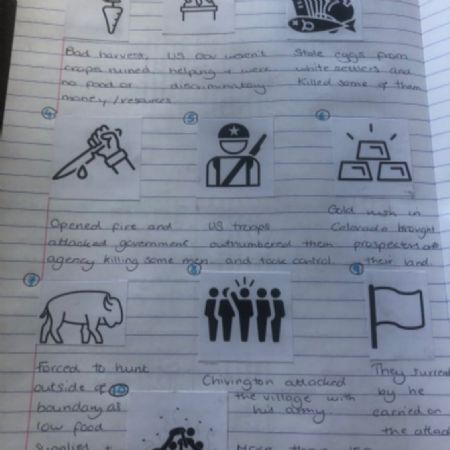 Bad harvest,
crops ruined,
no food or
money/resources
US Gov weren't
helping + were
discriminatory
Stole eggs from
white settlers and
killed some of them
4
Opened fire and
attacked government
agency killing some men
5
US troops
outnumbered them
and took control
6
Gold rush in
Colorado brought
prospectors
their land
7
Forced to hunt
outside of
boundary as
low food
supplies +
8
Chivington attacked
the village with
his army
9
They
by he
carried on
the attack
10
More than